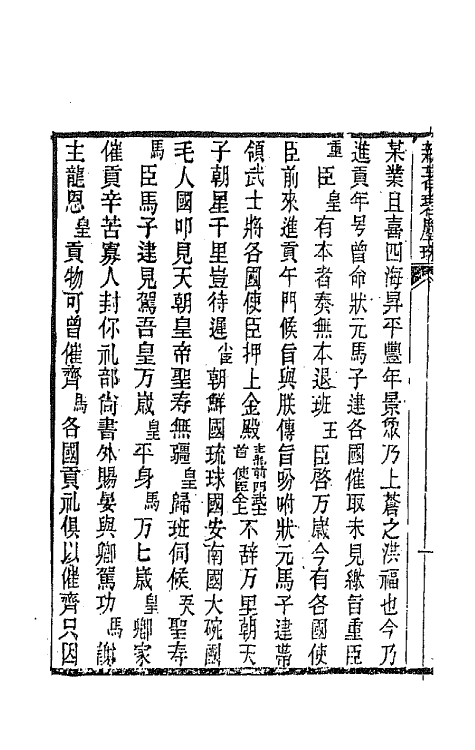 某業且喜四海昇平豐年景象乃上蒼之洪福也今乃
進貢年号曾命狀元馬子建各國催取未見繳旨重臣
重臣皇有本者奏無本退班王臣啓万歲今有各國使
臣前來進貢午門候旨與朕傳旨吩咐狀元馬子建帶
領武士將各國使臣押上金殿不辞万里朝天
子朝星千里豈待遲朝鮮國琉球國安南國大碗國
毛人國叩見天朝皇帝聖寿無疆皇歸班伺候聖寿
馬臣馬子建見駕吾皇万歲皇平身馬万七歲皇卿家
催貢辛苦寡人封你礼部尙書外賜晏與卿駕功馬謝
主龍恩皇貢物可曾催齊馬各國貢礼俱以催齊只因